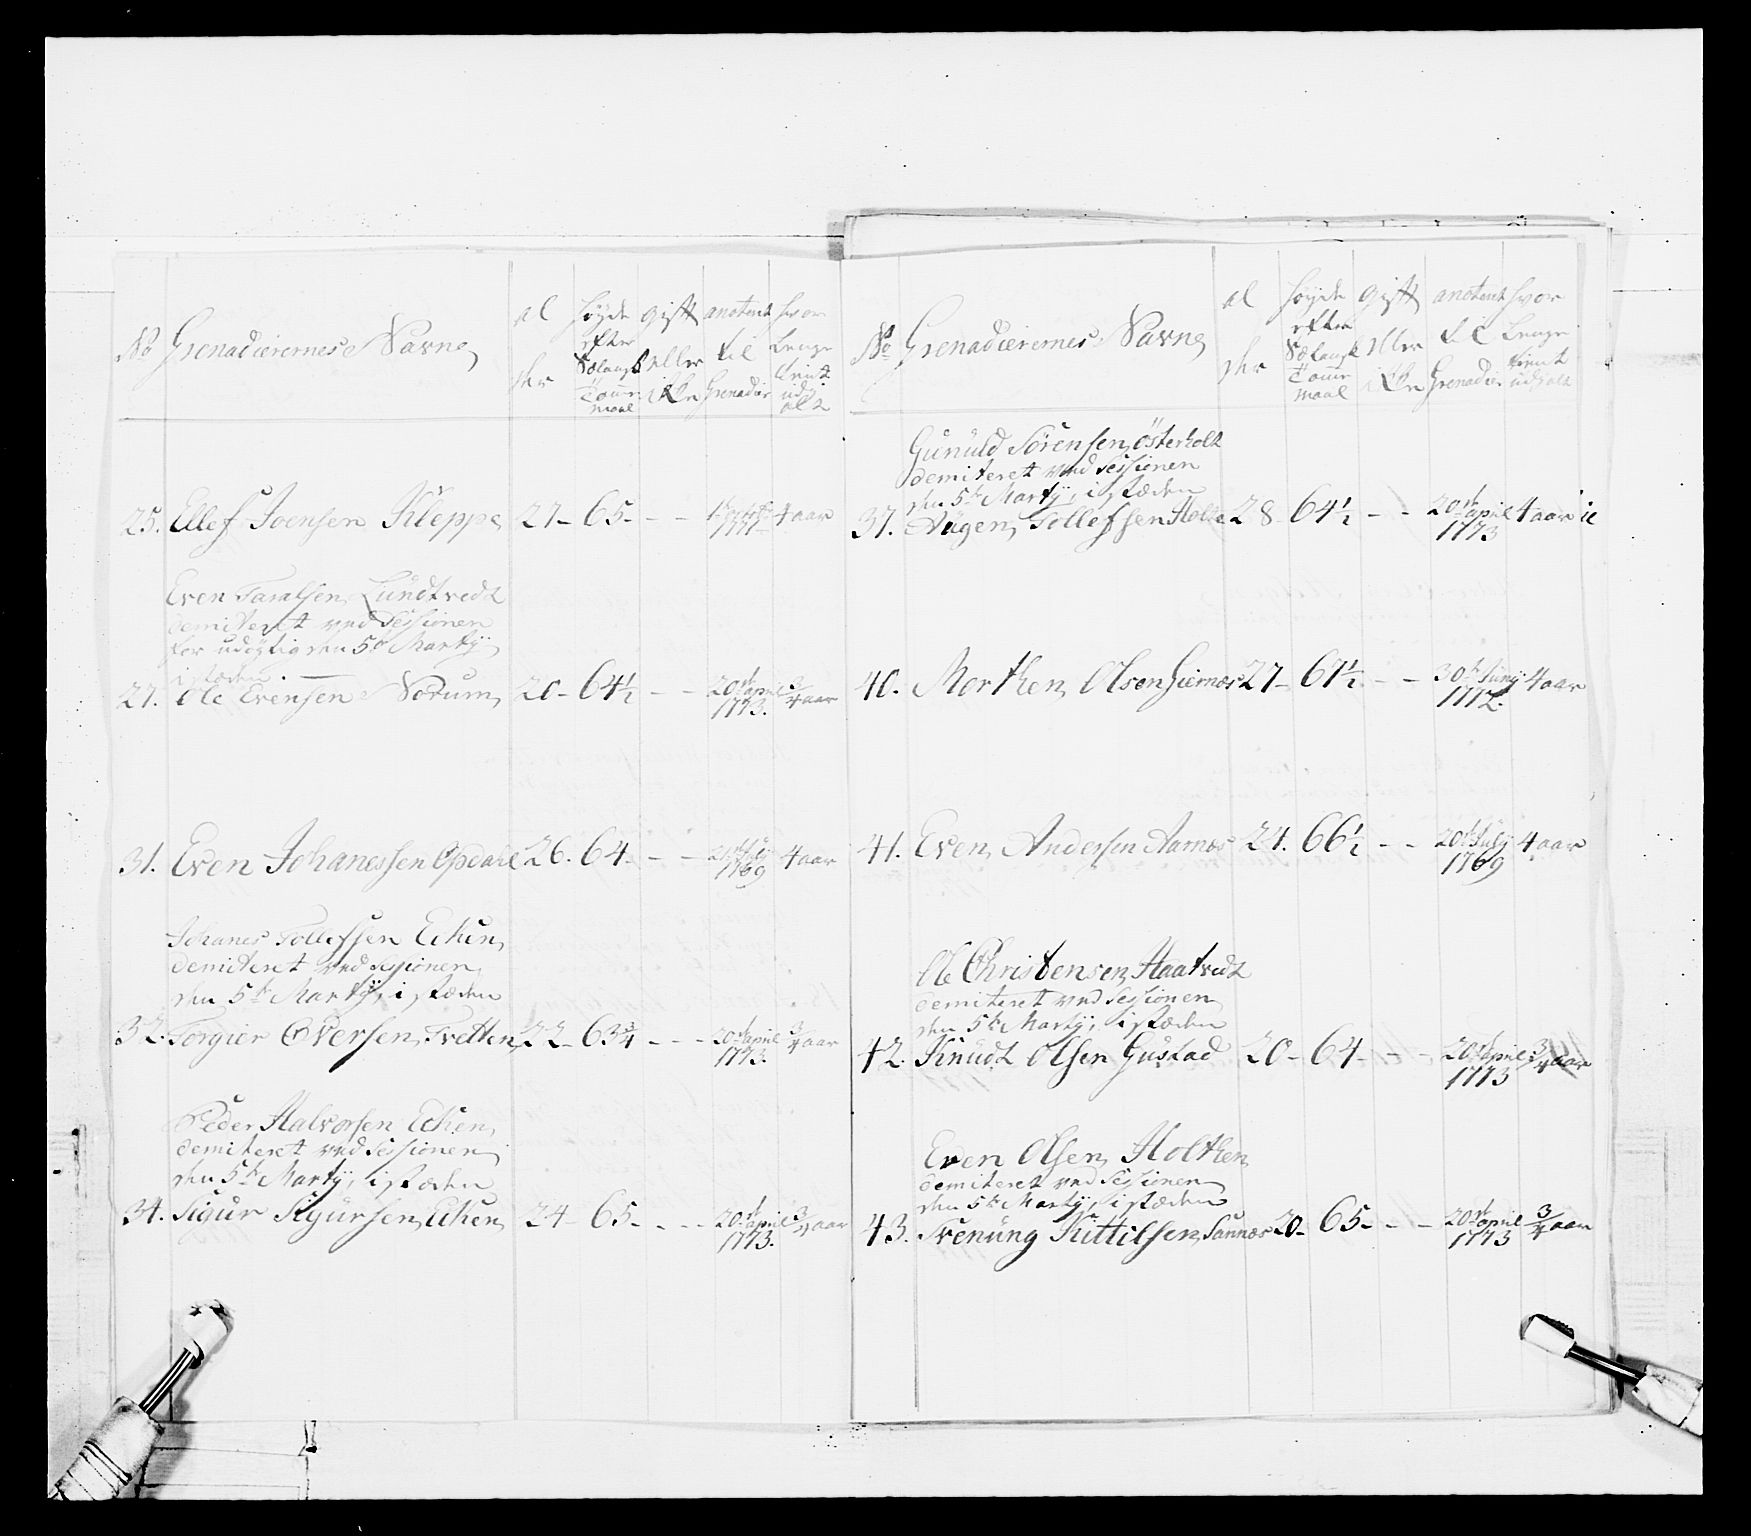 No Grenadierernes Navne
al
der
høyde
efter
Sælansk
Tomme
maal
gift
eller
ikke
anotert
til
Grenadier
hvor
lenge
tient
ud
alt
25. Ellef Joensen Kleppe 27 - 65 - - - 1771 4 aar
Even Taralsen Lundtvedt
demiteret ved Sessionen
for udygtig den 5te Marty
i stæden
27. Ole Evensen Norum 20 - 64½ - - 20de april 1773. ¾ aar
31. Even Johanessen Opdahl 26. 64. - - 1769 4 aar
Johanes Tollefssen Echen
demiteret ved Sessionen
den 5te Marty, i stæden
32. Torgier Eversen Tvetten 22 - 63¾ - - - 20de april 1773. ¾ aar
Peder Halvorsen Echen
demiteret ved Sessionen
den 5te Marty, i stæden
34. Sigur Sigursen Echen 24 - 65 - - - 20de april 1773. ¾ aar
No Grenadierernes Navne
al
der
høyde
efter
Sælansk
Tomme
maal
gift
eller
ikke
anotert
til
Grenadier
hvor
lenge
tient
ud alt
Gunuld Sørensen Österholt
demiteret ved Sessionen
den 5te Marty, i stæden
37. Augen Tollefsen Holte 28 64½ - - 20de april 1773 4 aar
40. Morthen Olsen 27 - 67½ - - 30te Juny 1772. 4 aar
41. Even Andersen Aarnæs 24. 66½ - - 20de July 1769 4 aar
Ole Christensen Haatvedt
demiteret ved Sessionen
den 5te Marty, i stæden
42. Knudt Olsen Gustad 20 - 64 - - - 20de april 1773 ¾ aar
Even Olsen Holthen
demiteret ved Sessionen
den 5te Marty, i stæden
43. Svenung Kittilsen Sannæs 20 - 65 - - - 20de april 1773 ¾ aar